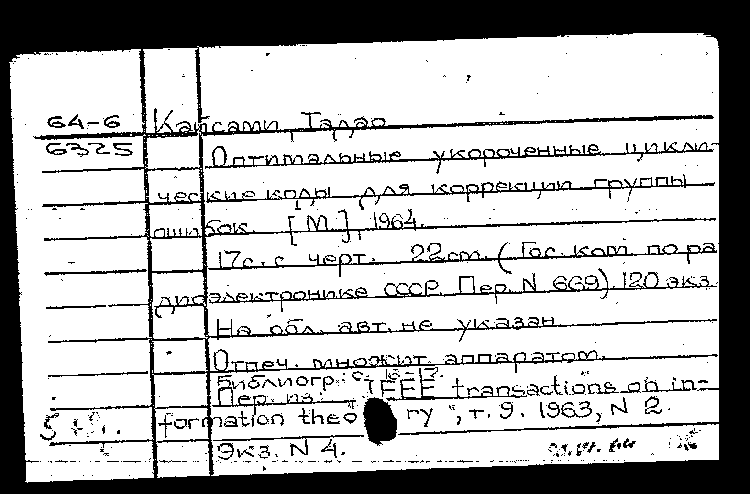 64-6 Кайсами, Тадао
6325 Оптимальные укороченные цикли-
ческие коды для коррекции группы
ошибок. [М.], 1964.
17с. с черт. 22см. (Гос. ком. по ра
диоэлектронике СССР. Пер. N 669). 120 экз.
На обл. авт. не указан
Отпеч. множит. аппаратом.
Библиогр.: с. 16-17.
Пер. из: IEEE transactions on in-
formation theory", т. 9. 1963, N 2.
Экз. N 4.